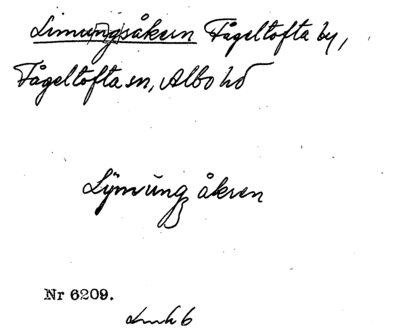 Limungsåkern Fågeltofta by,
Fågeltofta sn, Albo hd
Lymung åkren
Nr 6209.